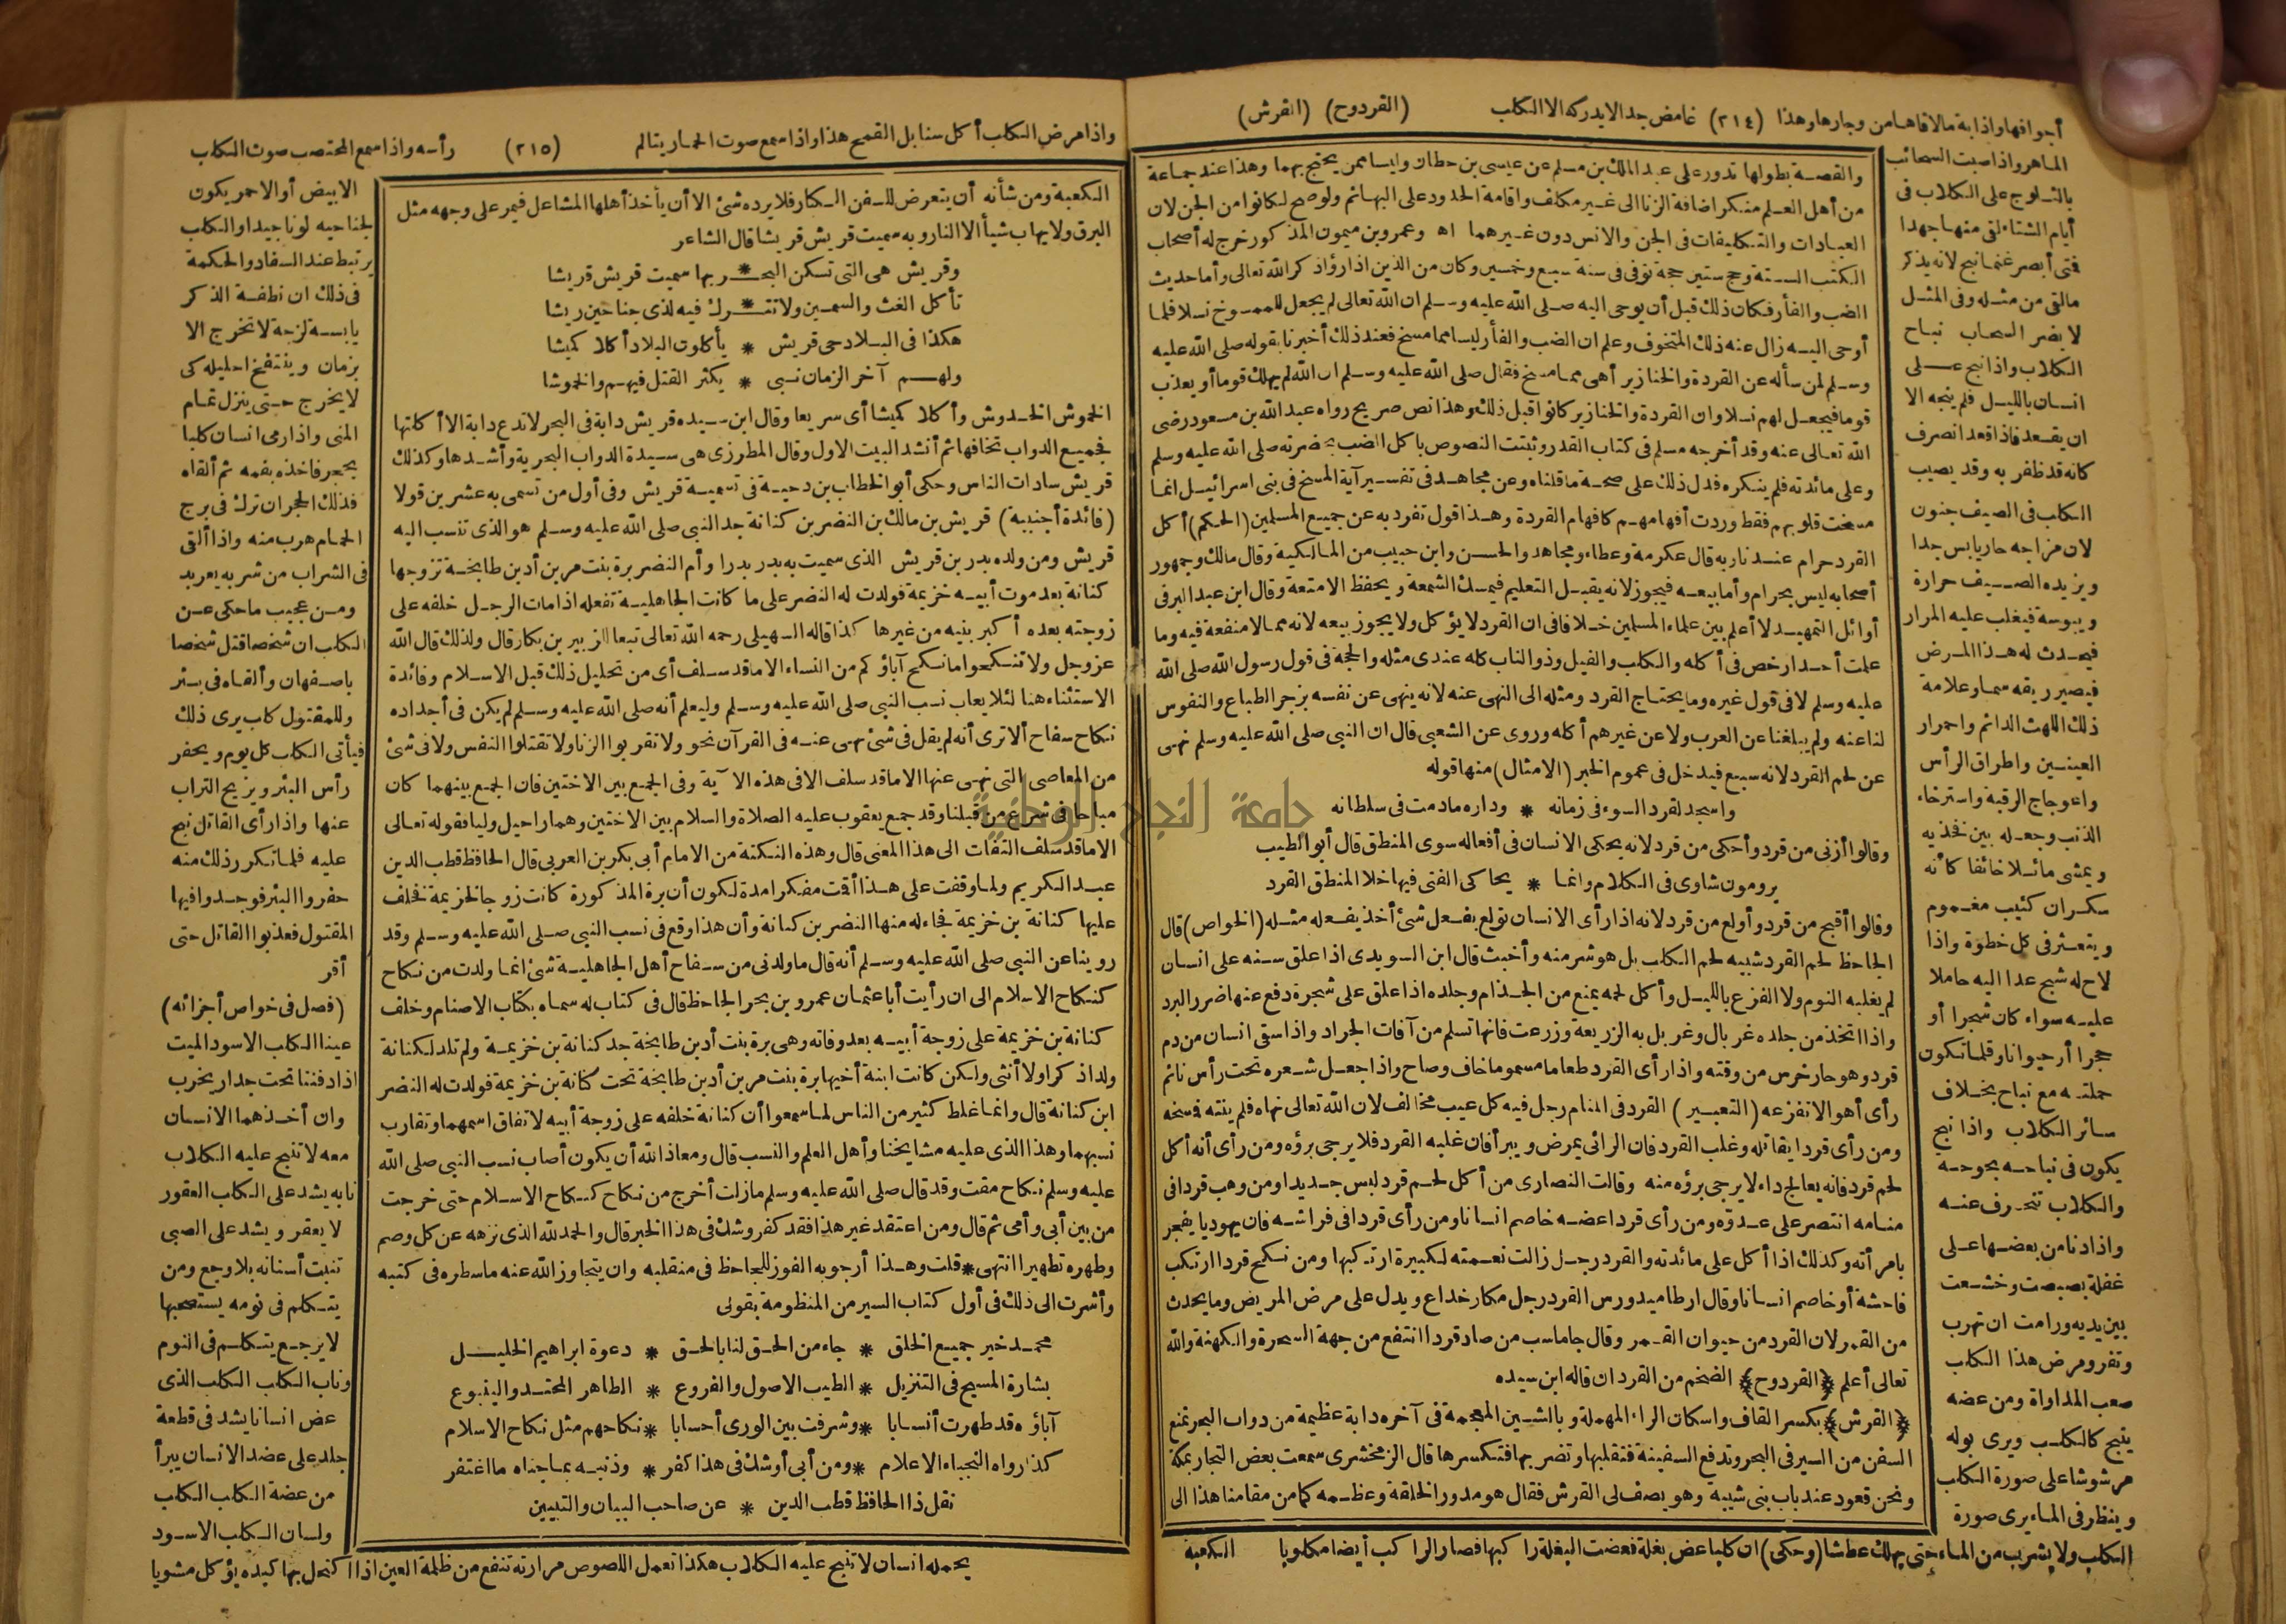 أجوافها واذا بة مالا قاها من وجارها وهذا (٢١٤) غامض جدا لا يدركه الا الكلب (القردوح) (القرش)
الماهر واذا صبت السحائب
بالثلوج على الكلاب فى
أيام الشتاء لقى منها جهدا
فتى أبصر غنما نبح لانه يذكر
مالقى من مثله وفى المثل
لا يضر السحاب نباح
الكلاب واذا نبح على
انسان بالليل فلم ينجه الا
ان يقعد فاذا قعد انصرف
كانه قد ظفر به وقد يصيب
الكلب فى الصيف جنون
لان مزاجه حار يابس جدا
ويزيده الصيف حرارة
ويبوسة فيغلب عليه المرار
فيحدث له هذا المرض
فيصير ريقه سما وعلامة
ذلك اللهث الدائم واحمرار
العينين واطراق الرأس
واعوجاج الرقبة واسترخاء
الذنب وجعله بين فخذيه
ويمشى مائلا خائفا كأنه
سكران كئيب مغموم
ويتعثر فى كل خطوة واذا
لاح له شبح عدا اليه حاملا
عليه سواء كان شجرا أو
حجرا أو حيوانا وقلما تكون
حملته مع نباح بخلاف
سائر الكلاب واذا نبح
يكون فى نباحه بحوحة
والكلاب تنحرف عنه
واذا دنا من بعضها على
غفلة بصبصت وخشعت
بين يديه ورامت ان تهرب
وتفر ومرض هذا الكلب
صعب المداواة ومن عضه
ينبح كالكلب ويرى بوله
مرشوشا على صورة الكلب
وينظر فى الماء يرى صورة
الكلب ولا يشرب من الماء حتى يهلك عطشا (وحكى) ان كلبا عض بغلة فعضت البغلة راكبها فصار الراكب أيضا مكلوبا الكعبة
والقصة بطولها تدور على عبد الملك بن مسلم عن عيسى بن حطان وليسا ممن يحتج بهما وهذا عند جماعة
من أهل العلم منكر اضافة الزنا الى غير مكلف واقامة الحدود على البهائم ولو صح لكانوا من الجن لان
العبادات والتكليفات فى الجن والانس دون غيرهما اه وعمرو بن ميمون المذكور خرج له أصحاب
الكتب الستة وحج ستين حجة توفى فى سنة سبع وخمسين وكان من الذين اذا رؤا ذكر الله تعالى وأما حديث
الضب والفأر فكان ذلك قبل أن يوحى اليه صلى الله عليه وسلم ان الله تعالى لم يجعل للممسوخ نسلا فلما
أوحى اليه زال عنه ذلك المتخوف وعلم ان الضب والفأر ليسا مما مسخ فعند ذلك أخبرنا بقوله صلى الله عليه
وسلم لمن سأله عن القردة والخنازير أهى مما مسخ فقال صلى الله عليه وسلم ان الله لم يهلك قوما أو يعذب
قوما فيجعل لهم نسلا وان القردة والخنازير كانوا قبل ذلك وهذا نص صريح رواه عبد الله بن مسعود رضى
الله تعالى عنه وقد أخرجه مسلم فى كتاب القدر وثبتت النصوص باكل الضب بحضرته صلى الله عليه وسلم
وعلى مائدته فلم ينكره فدل ذلك على صحة ما قلناه وعن مجاهد فى تفسير آية المسخ فى بنى اسرائيل انما
مسخت قلوبهم فقط وردت أفهامهم كافهام القردة وهذا قول تفرد به عن جميع المسلمين (الحكم) أكل
القرد حرام عندنا وبه قال عكرمة وعطاء ومجاهد والحسن وابن حبيب من المالكية وقال مالك وجمهور
أصحابه ليس بحرام وأما بيعه فيجوز لانه يقبل التعليم فيمسك الشمعة ويحفظ الامتعة وقال ابن عبد البر فى
أوائل التمهيد لا أعلم بين علماء المسلمين خلافا فى ان القرد لا يؤكل ولا يجوز بيعه لانه مما لا منفعة فيه وما
علمت أحدا رخص فى أكله والكلب والفيل وذو الناب كله عندى مثله والحجة فى قول رسول الله صلى الله
عليه وسلم لا فى قول غيره وما يحتاج القرد ومثله الى النهى عنه لانه ينهى عن نفسه بزجر الطباع والنفوس
لنا عنه ولم يبلغنا عن العرب ولا عن غيرهم أكله وروى عن الشعبى قال ان النبى صلى الله عليه وسلم نهى
عن لحم القرد لانه سبع فيدخل فى عموم الخبر (الامثال) منها قوله
واسجد لقرد السوء فى زمانه * وداره مادمت فى سلطانه
وقالوا أزنى من قرد وأحكى من قرد لانه يحكى الانسان فى أفعاله سوى المنطق قال أبو الطيب
يرومون شاوى فى الكلام وانما * يحاكى الفتى فيما خلا المنطق القرد
وقالوا أقبح من قرد وأولع من قرد لانه اذا رأى الانسان تولع بفعل شئ أخذ يفعله مثله (الخواص) قال
الجاحظ لحم القرد شبيه لحم الكلب بل هو شر منه وأخبث قال ابن السويدى اذا علق سنه على انسان
لم يغلبه النوم ولا الفزع بالليل وأكل لحمه يمنع من الجذام وجلده اذا علق على شجرة دفع عنها ضرر البرد
واذا اتخذ من جلده غربال وغربل به الزريعة وزرعت فانها تسلم من آفات الجراد واذا سقى انسان من دم
قرد وهو حار خرس من وقته واذا رأى القرد طعاما مسموما خاف وصاح واذا جعل شعره تحت رأس نائم
رأى أهوالا تفزعه (التعبير) القرد فى المنام رجل فيه كل عيب مخالف لان الله تعالى نهاه فلم ينته فمسخه
ومن رأى قردا يقاتله وغلب القرد فان الرائى يمرض ويبرأ فان غلبه القرد فلا يرجى برؤه ومن رأى أنه أكل
لحم قرد فانه يعالج داء لا يرجى برؤه منه وقالت النصارى من أكل لحم قرد لبس جديدا ومن وهب قردا فى
منامه انتصر على عدوّه ومن رأى قردا عضه خاصم انسانا ومن رأى قردا فى فراشه فان يهوديا يفجر
بامرأته وكذلك اذا أكل على مائدته والقرد رجل زالت نعمته لكبيرة ارتكبها ومن نكح قردا ارتكب
فاحشة أو خاصم انسانا وقال ارطاميدورس القرد رجل مكار خداع ويدل على مرض المريض وما يحدث
من القمر لان القرد من حيوان القمر وقال جاماسب من صاد قردا انتفع من جهة السحرة والكهنة والله
تعالى أعلم ﴿القردوح﴾ الضخم من القردان قاله ابن سيده
﴿القرش﴾ بكسر القاف واسكان الراء المهملة وبالشين المعجمة فى آخره دابة عظيمة من دواب البحر تمنع
السفن من السير فى البحر وتدفع السفينة فتقلبها وتضربها فتكسرها قال الزمخشرى سمعت بعض التجار بمكة
ونحن قعود عند باب بنى شيبة وهو يصف لى القرش فقال هو مدور الخلقة وعظمه كما من مقامنا هذا الى
واذا مرض الكلب أكل سنابل القمح هذا واذا سمع صوت الحمار يتالم (٢١٥) رأسه واذا سمع المختصب صوت الكلب
الكعبة ومن شأنه أن يتعرض للسفن الكبار فلا يرده شئ الا أن يأخذ أهلها المشاعل فيمر على وجهه مثل
البرق ولا يهاب شيأ الا النار وبه سميت قريش قريشا قال الشاعر
وقريش هى التى تسكن البحـ * ـر بها سميت قريش قريشا
تأكل الغث والسمين ولا تتـ * ـرك فيه لذى جناحين ريشا
هكذا فى البلاد حى قريش * يأكلون البلاد أكلا كميشا
ولهم آخر الزمان نبى * يكثر القتل فيهم والخموشا
الخموش الخدوش وأكلا كميشا أى سريعا وقال ابن سيده قريش دابة فى البحر لا تدع دابة الا أكلتها
فجميع الدواب تخافها ثم أنشد البيت الاول وقال المطرزى هى سيدة الدواب البحرية وأشدها وكذلك
قريش سادات الناس وحكى أبو الخطاب بن دحية فى تسمية قريش وفى أول من تسمى به عشرين قولا
(فائدة أجنبية) قريش بن مالك بن النضر بن كنانة جد النبى صلى الله عليه وسلم هو الذى تنسب اليه
قريش ومن ولده بدر بن قريش الذى سميت به بدر بدرا وأم النضر برة بنت مر بن أد بن طابخة تزوجها
كنانة بعد موت أبيه خزيمة فولدت له النضر على ما كانت الجاهلية تفعله اذا مات الرجل خلفه على
زوجته بعده أكبر بنيه من غيرها كذا قاله السهيلى رحمه الله تعالى تبعا للزبير بن بكار قال ولذلك قال الله
عز وجل ولا تنكحوا ما نكح آباؤكم من النساء الا ما قد سلف أى من تحليل ذلك قبل الاسلام وفائدة
الاستثناء هنا لئلا يعاب نسب النبى صلى الله عليه وسلم وليعلم أنه صلى الله عليه وسلم لم يكن فى أجداده
نكاح سفاح ألا ترى أنه لم يقل فى شئ نهى عنه فى القرآن نحو ولا تقربوا الزنا ولا تقتلوا النفس ولا فى شئ
من المعاصى التى نهى عنها الا ما قد سلف الا فى هذه الآية وفى الجمع بين الاختين فان الجمع بينهما كان
مباحا فى شرع من قبلنا وقد جمع يعقوب عليه الصلاة والسلام بين الاختين وهما راحيل وليا فقوله تعالى
الا ما قد سلف التفات الى هذا المعنى قال وهذه النكتة من الامام أبى بكر بن العربى قال الحافظ قطب الدين
عبد الكريم ولما وقفت على هذا أقت مفكرا مدة لكون أن برة المذكورة كانت زوجا لخزيمة فخلف
عليها كنانة بن خزيمة فجاءه منها النضر بن كنانة وأن هذا وقع فى نسب النبى صلى الله عليه وسلم وقد
روينا عن النبى صلى الله عليه وسلم أنه قال ما ولدنى من سفاح أهل الجاهلية شئ انما ولدت من نكاح
كنكاح الاسلام الى ان رأيت أبا عثمان عمرو بن بحر الجاحظ قال فى كتاب له سماه بكتاب الاصنام وخلف
كنانة بن خزيمة على زوجة أبيه بعد وفاته وهى برة بنت أد بن طابخة جد كنانة بن خزيمة ولم تلد لكنانة
ولدا ذكرا ولا أنثى ولكن كانت ابنة أخيها برة بنت مر بن أد بن طابخة تحت كنانة بن خزيمة فولدت له النضر
ابن كنانة قال وانما غلط كثير من الناس لما سمعوا أن كنانة خلفه على زوجة أبيه لاتفاق اسمهما وتقارب
نسبهما وهذا الذى عليه مشايخنا وأهل العلم والنسب قال ومعاذ الله أن يكون أصاب نسب النبى صلى الله
عليه وسلم نكاح مقت وقد قال صلى الله عليه وسلم مازلت أخرج من نكاح كنكاح الاسلام حتى خرجت
من بين أبى وأمى ثم قال ومن اعتقد غير هذا فقد كفر وشك فى هذا الخبر قال والحمد لله الذى نزهه عن كل وصم
وطهره تطهيرا انتهى * قلت وهذا أرجو به الفوز للجاحظ فى منقلبه وان يتجاوز الله عنه ما سطره فى كتبه
وأشرت الى ذلك فى أول كتاب السير من المنظومة بقولى
محمد خير جميع الخلق * جاء من الحق لنا بالحق * دعوة ابراهيم الخليل
بشارة المسيح فى التنزيل * الطيب الاصول والفروع * الطاهر المحتد والينبوع
آباؤه قد طهرت أنسابا * وشرفت بين الورى أحسابا * نكاحهم مثل نكاح الاسلام
كذا رواه النجباء الاعلام * ومن أبى أو شك فى هذا كفر * وذنبه بما جناه ما اغتفر
نقل ذا الحافظ قطب الدين * عن صاحب البيان والتبيين
الابيض أو الاحمر يكون
لجناحيه لونا جيدا والكلب
يرتبط عند السفاد والحكمة
فى ذلك ان نطفة الذكر
يابسة لزجة لا تخرج الا
بزمان وينتفخ احليله كى
لا يخرج حتى ينزل تمام
المنى واذا رمى انسان كلبا
بحجر فاخذه بفمه ثم ألقاه
فذلك الحجر ان ترك فى برج
الحمام هرب منه واذا ألقى
فى الشراب من شربه يعربد
ومن عجيب ما حكى عن
الكلب ان شخصا قتل شخصا
باصفهان وألقاه فى بئر
وللمقتول كلب يرى ذلك
فيأتى الكلب كل يوم ويحفر
رأس البئر ويزيح التراب
عنها واذا رأى القاتل نبح
عليه فلما تكرر ذلك منه
حفروا البئر فوجدوا فيها
المقتول فعذبوا القاتل حتى
أقر
(فصل فى خواص أجزائه)
عينا الكلب الاسود الميت
اذا دفنتا تحت جدار يخرب
وان أخذهما الانسان
معه لا تنبح عليه الكلاب
نابه يشد على الكلب العقور
لا يعقر ويشد على الصبى
تنبت أسنانه بلا وجع ومن
يتكلم فى نومه يستصحبها
لا يرجع يتكلم فى النوم
وناب الكلب الكلب الذى
عض انسانا يشد فى قطعة
جلد على عضد الانسان يبرأ
من عضة الكلب الكلب
ولسان الكلب الاسود
يحمله انسان لا تنبح عليه الكلاب هكذا تعمل اللصوص مرارته تنفع من ظلمة العين اذا اكتحل بها كبده يؤكل مشويا
جامعة النجاح الوطنية